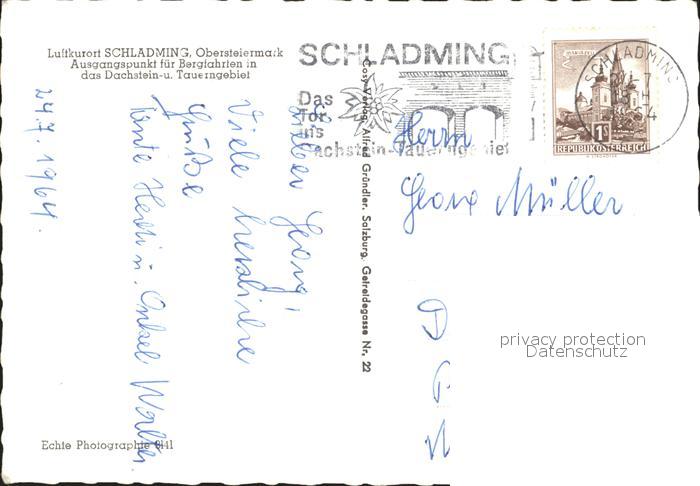 Luftkurort SCHLADMING, Obersteiermark
Ausgangspunkt für Bergfahrten in
das Dachstein-u. Tauerngebiet
SCHLADMING
Das
Tor
ins
Dachstein-Tauerngebiet
SCHLADMING
1S
REPUBLIK ÖSTERREICH
24.7.1964.
Lieber Georg,
Viele herzliche
Grüße
Tante Hedi u. Onkel Walter
Cosy-Verlag Alfred Gründler, Salzburg, Getreidegasse Nr. 22
Herrn
Georg Müller
privacy protection
Datenschutz
Echte Photographie